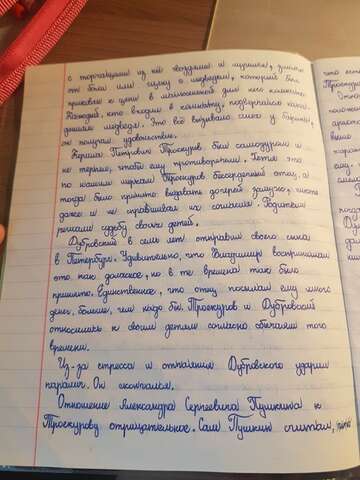 с торчащими из неё гвоздями и
от бочки или сцену с медведем, который был
прикован к цепи в маленькой для него комнате.
Каждый, кто входил в комнату, подвергался
медведя. Это всё вызывало смех у барина,
он получал удовольствие.
Кирила Петрович Троекуров был самодуром и
не терпел, чтобы ему противоречили. Хотя это
по нашим меркам Троекуров бессердечный отец, а
тогда было принято выдавать дочерей замуж, часто
даже и не спрашивая их согласия. Родители
решали судьбу своих детей.
Дубровский в семь лет отправил своего сына
в Петербург. Удивительно, что Владимир воспринимал
это как должное, но в те времена так было
принято. Единственное, что отец посылал ему много
денег, больше, чем надо бы. Троекуров и Дубровский
относились к своим детям согласно обычаям того
времени.
Из-за стресса и отчаяния Дубровского ударил
паралич. Он скончался.
Отношение Александра Сергеевича Пушкина к
Троекурову отрицательное. Сам Пушкин считал, что